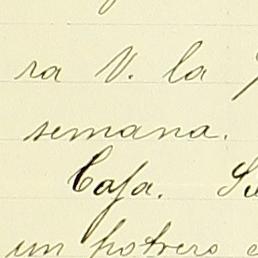 ra V. la
semana.
Cafa. Su
un potrero